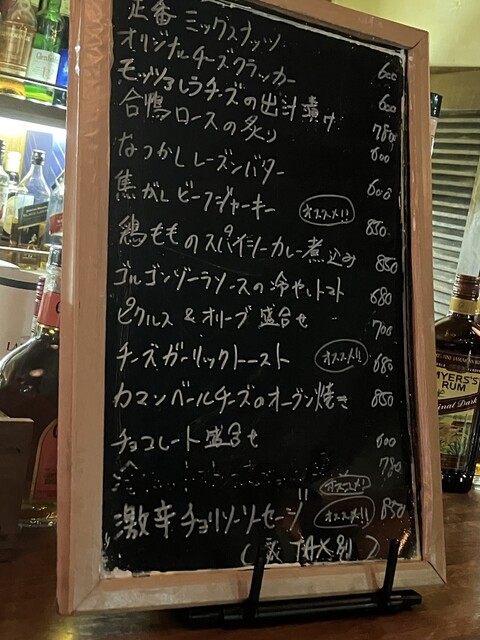 定番ミックスナッツ 600
オリジナルチーズクラッカー 600
モッツァレラチーズの出汁漬け 780
合鴨ロースの炙り 600
なつかしレーズンバター 600
焦がしビーフジャーキー オススメ!! 850
鶏もものスパイシーカレー煮込み 850
ゴルゴンゾーラソースの冷やしトマト 680
ピクルス&オリーブ盛合せ 700
チーズガーリックトースト オススメ!! 680
カマンベールチーズのオーブン焼き 850
チョコレート盛合せ 600
780
オススメ!
激辛チョリソーソーセージ オススメ!! 850
MYERS'S
RUM